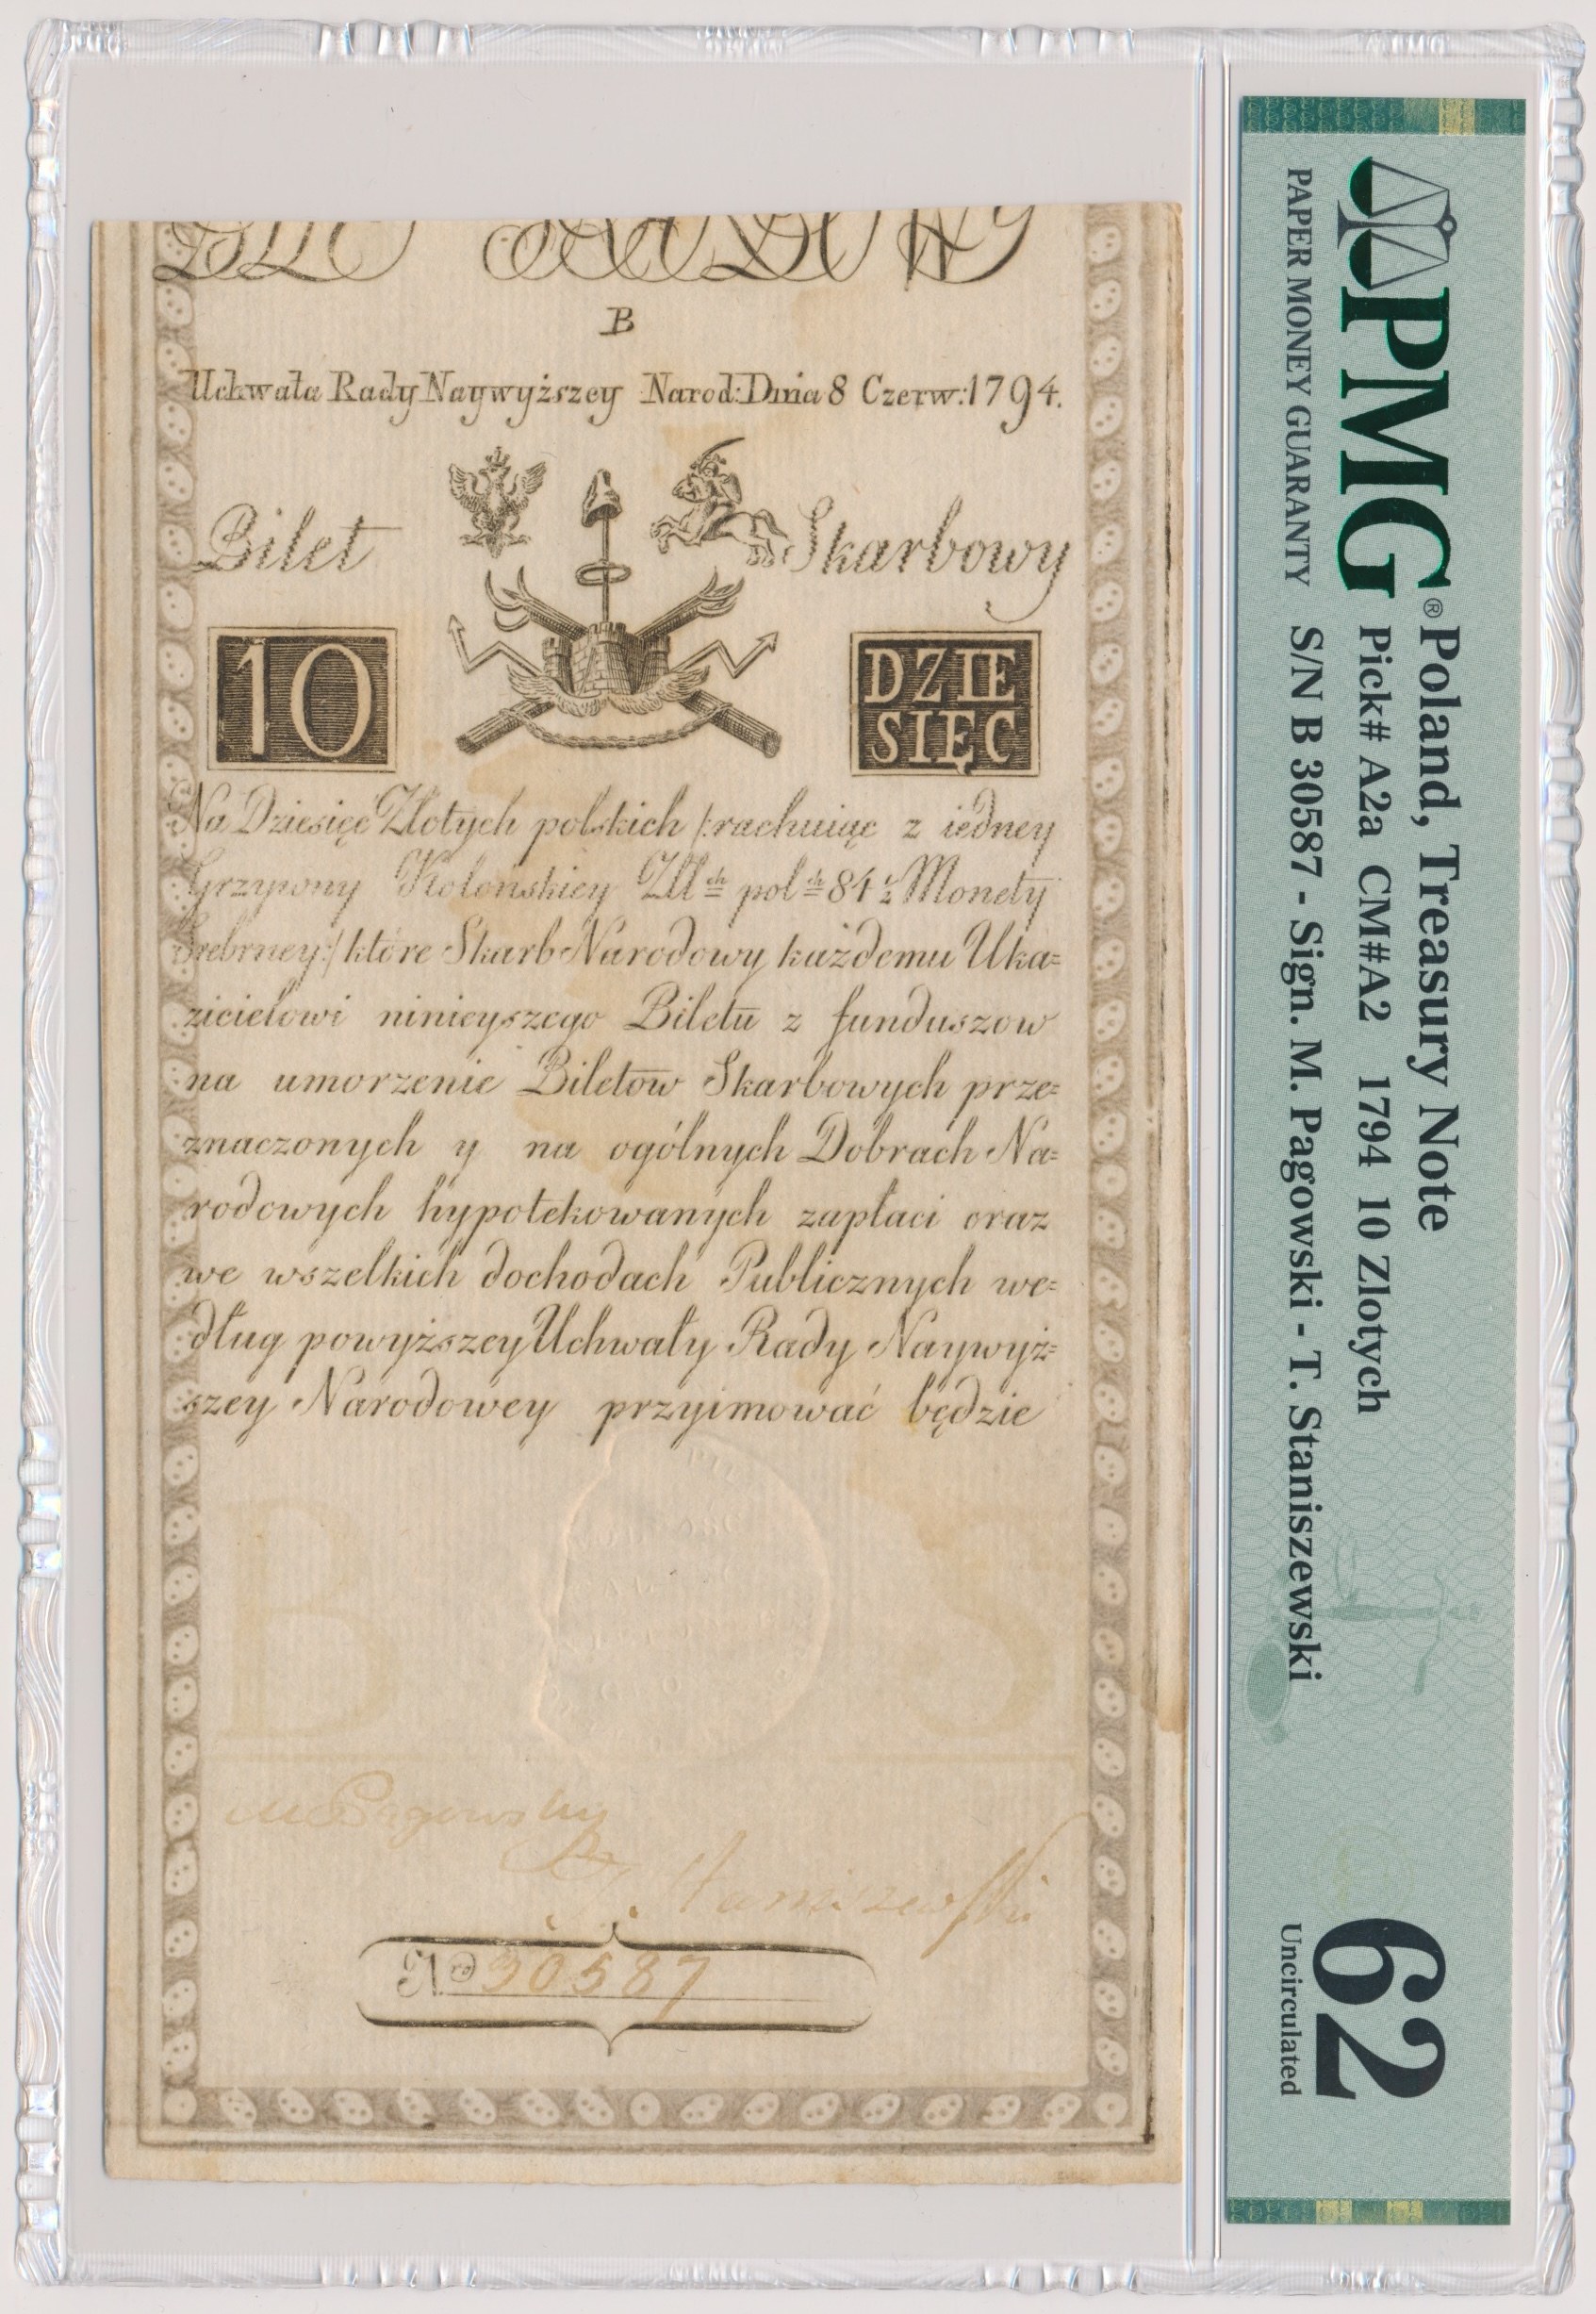 B
Uchwała Rady Naywyższey Narod: Dnia 8 Czerw: 1794.
Bilet Skarbowy
10
DZIE
SIĘC
Na Dziesięć Złotych polskich /:rachuiąc z iedney
Grzywny Kolonskiey Złł ch pol ch 84 1/2 Monety
Srebrney:/ które Skarb Narodowy każdemu Uka=
zicielowi ninieyszego Biletu z funduszow
na umorzenie Biletow Skarbowych prze=
znaczonych y na ogólnych Dobrach Na=
rodowych hypotekowanych zapłaci oraz
we wszelkich dochodach Publicznych we=
dług powyższey Uchwały Rady Naywyż=
szey Narodowey przyimować będzie
B S
M Pągowski
T. Staniszewski
Nro 30587
PMG®
PAPER MONEY GUARANTY
Poland, Treasury Note
Pick# A2a CM#A2 1794 10 Zlotych
S/N B 30587 - Sign. M. Pagowski - T. Staniszewski
62
Uncirculated